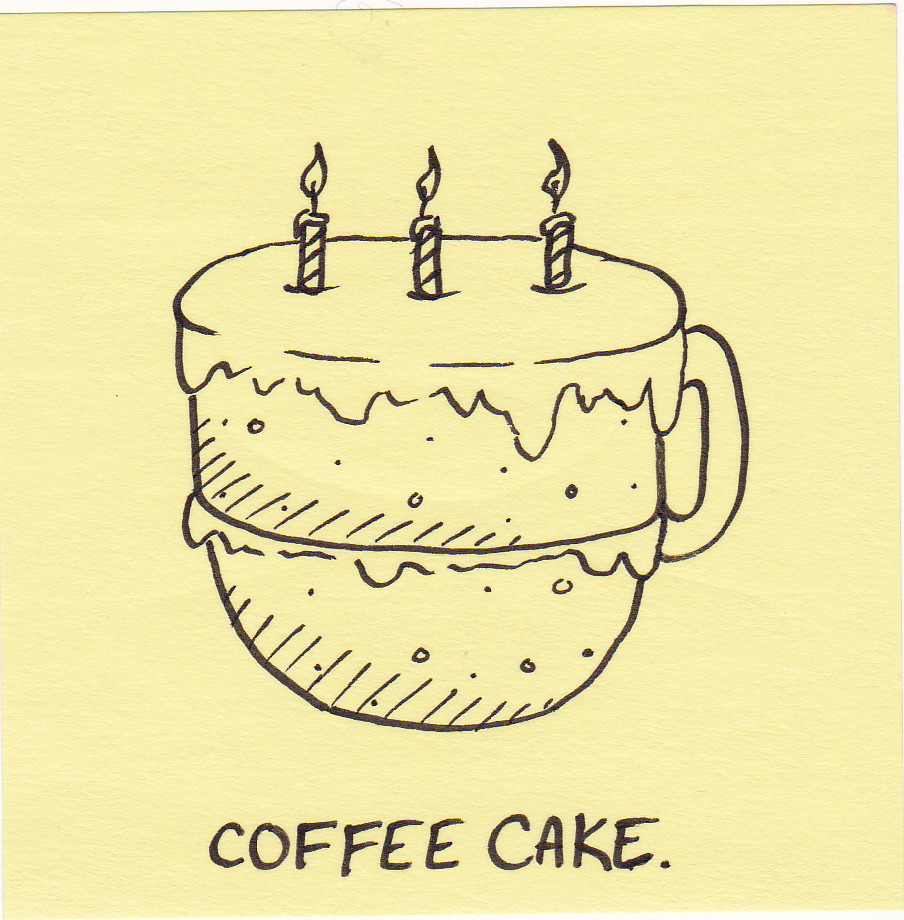 COFFEE CAKE.